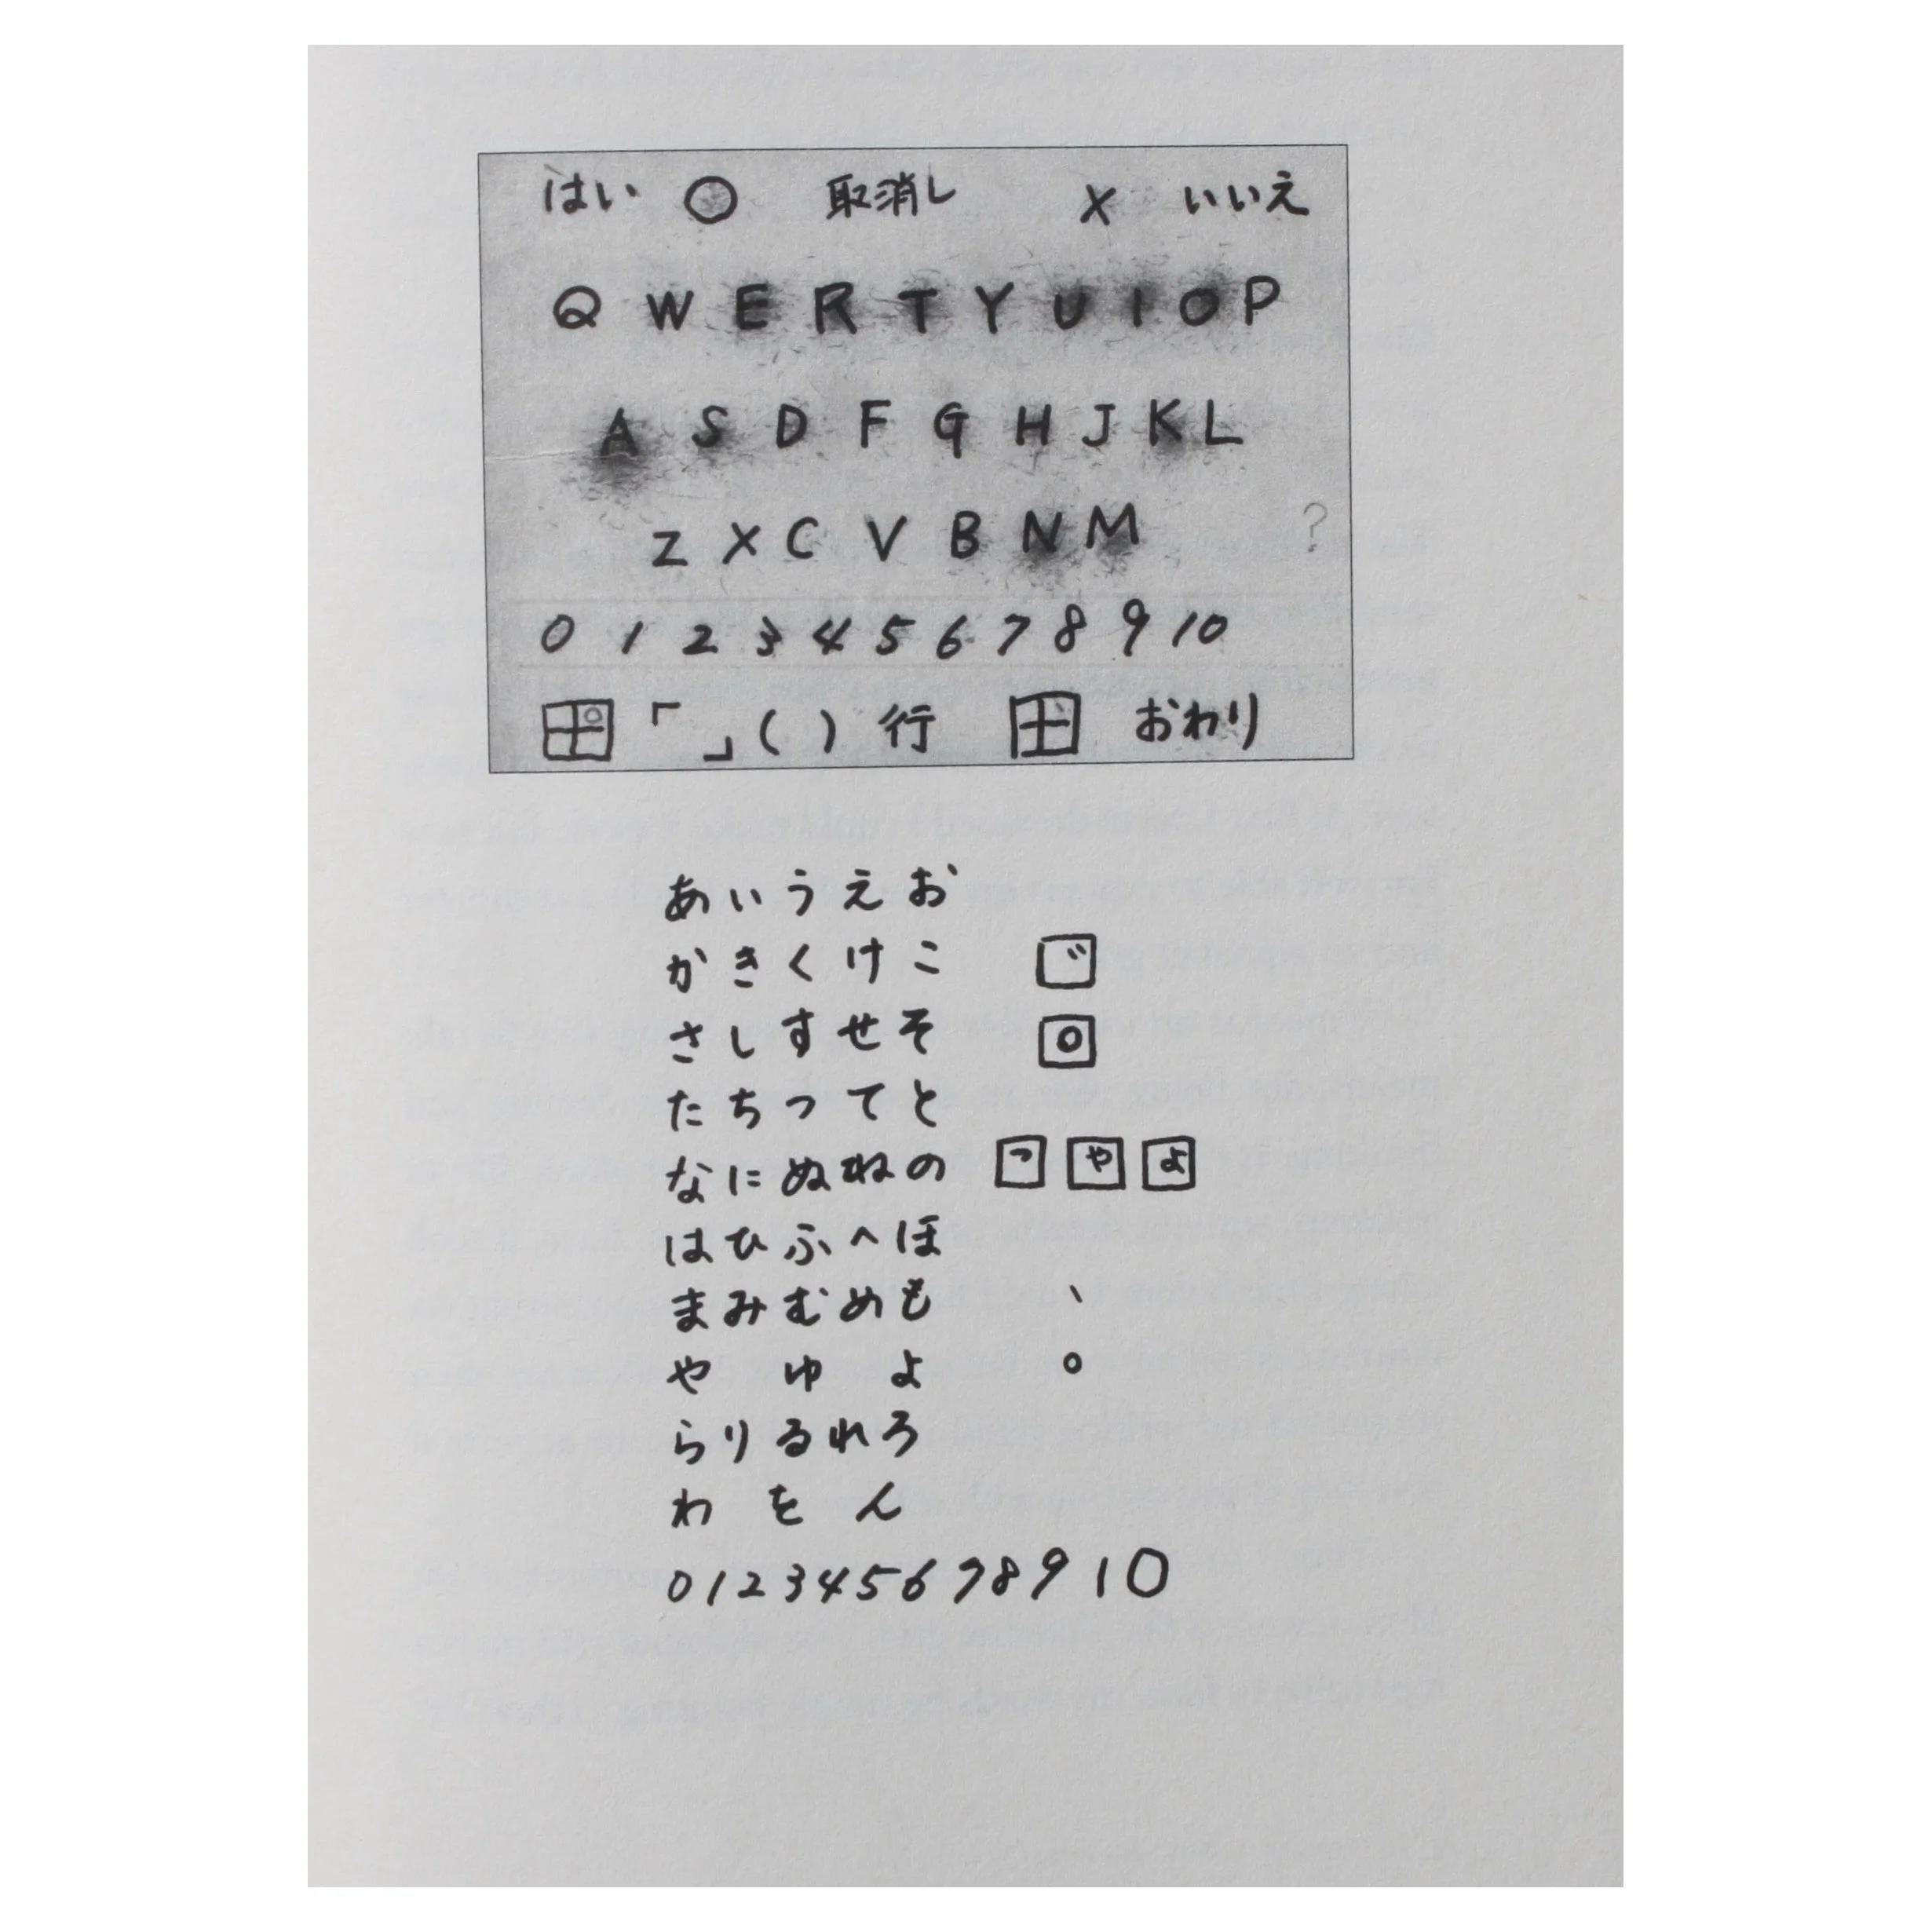 はい ○ 取消し × いいえ
Q W E R T Y U I O P
A S D F G H J K L
Z X C V B N M ?
0 1 2 3 4 5 6 7 8 9 10
「 」 ( ) 行 おわり
あ い う え お
か き く け こ ゛
さ し す せ そ ○
た ち つ て と
な に ぬ ね の っ ゃ ょ
は ひ ふ へ ほ
ま み む め も 、
や ゆ よ 。
ら り る れ ろ
わ を ん
0 1 2 3 4 5 6 7 8 9 10